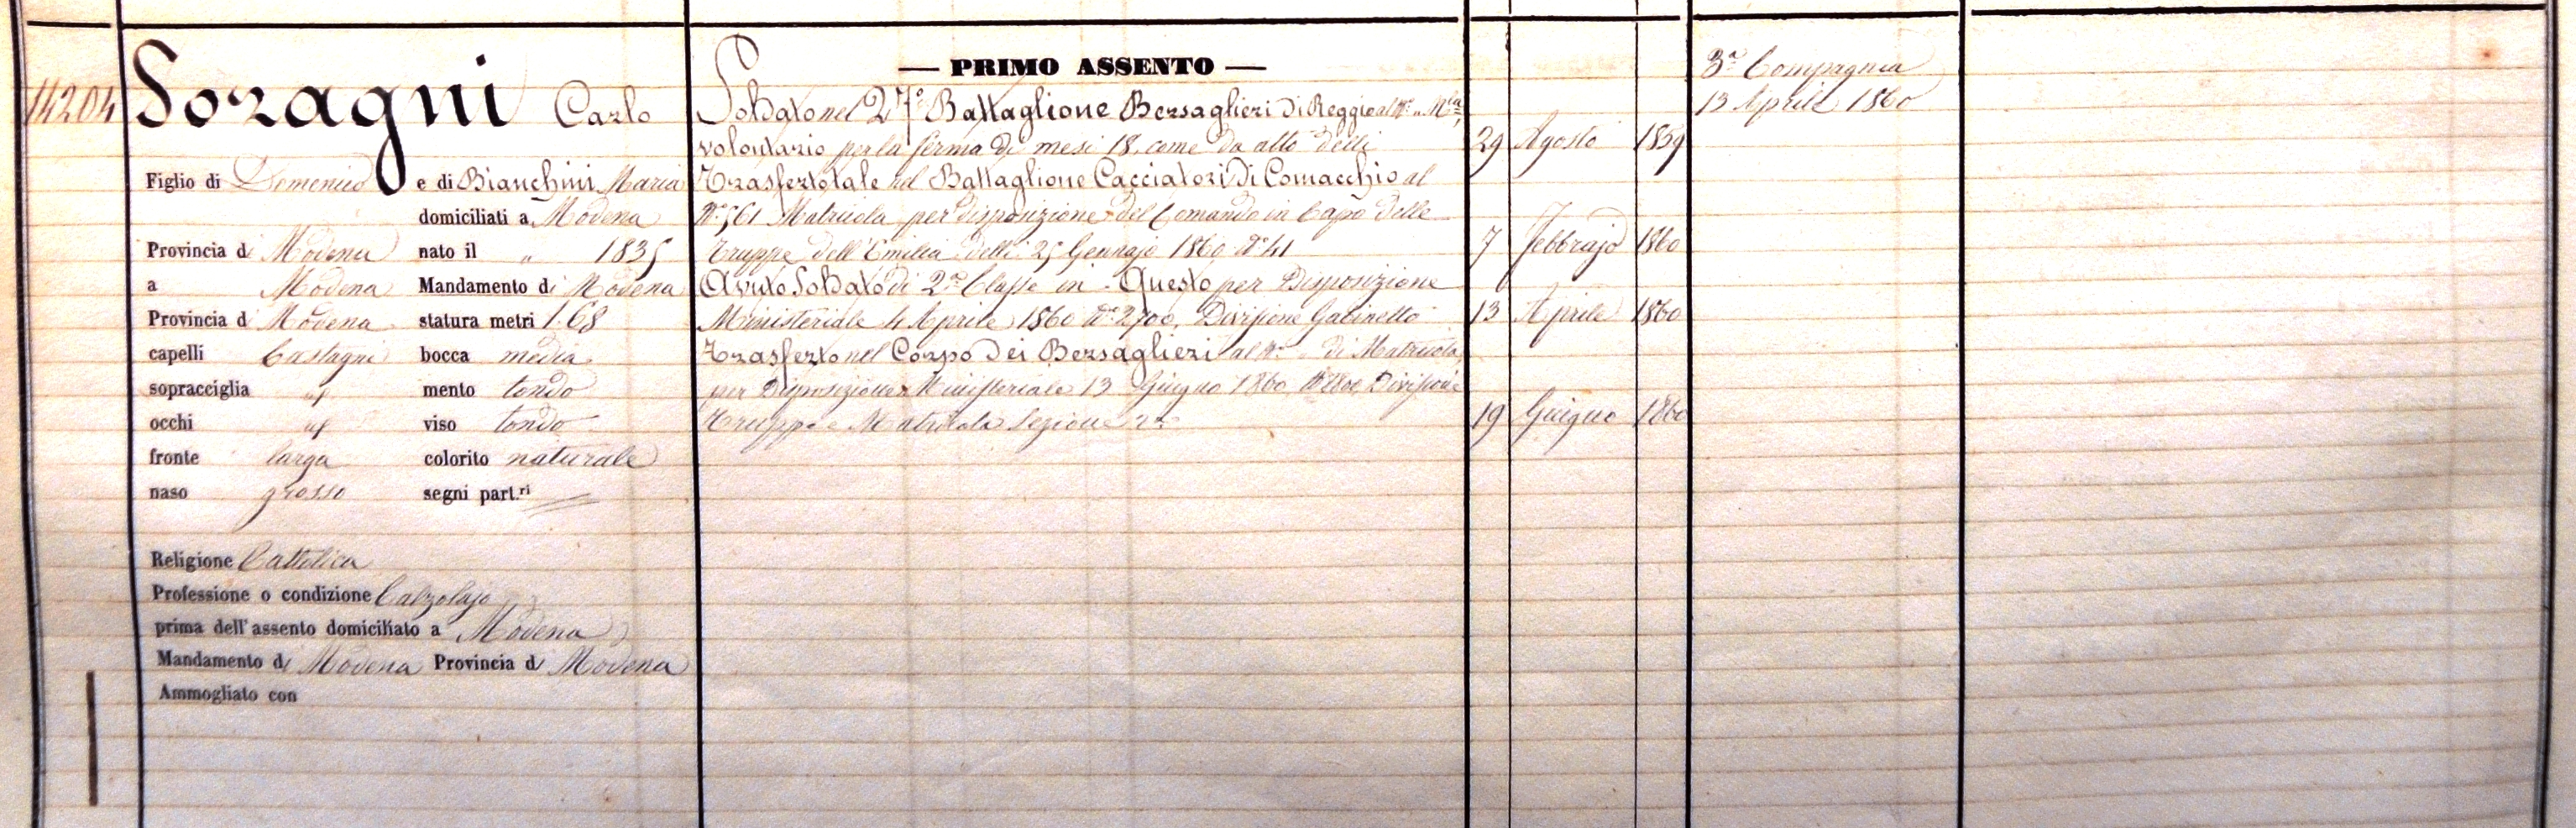 14204
Soragni Carlo
Figlio di Domenico e di Bianchini Maria
domiciliati a Modena
Provincia di Modena nato il " 1835
a Modena Mandamento di Modena
Provincia di Modena statura metri 1.68
capelli Castagni bocca media
sopracciglia id mento tondo
occhi id viso tondo
fronte larga colorito naturale
naso grosso segni part.ri
Religione Cattolica
Professione o condizione Calzolajo
prima dell'assento domiciliato a Modena
Mandamento di Modena Provincia di Modena
Ammogliato con
— PRIMO ASSENTO —
Soldato nel 27° Battaglione Bersaglieri di Reggio al N° " Mla,
volontario per la ferma di mesi 18, come da atto delli 29 Agosto 1859
Trasferto tale nel Battaglione Cacciatori di Comacchio al
N° 561 Matricola per disposizione del Comando in Capo delle
Truppe dell'Emilia delli 25 Gennajo 1860 N° 41 7 Febbrajo 1860
Avuto Soldato di 2a Classe in Questo per Disposizione
Ministeriale 4 Aprile 1860 N° 2700, Divisione Gabinetto 13 Aprile 1860
Trasferto nel Corpo dei Bersaglieri al N° " di Matricola,
per Disposizione Ministeriale 13 Giugno 1860, Divisione
Truppa e Matricola Sezione 2a 19 Giugno 1860
3a Compagnia
13 Aprile 1860